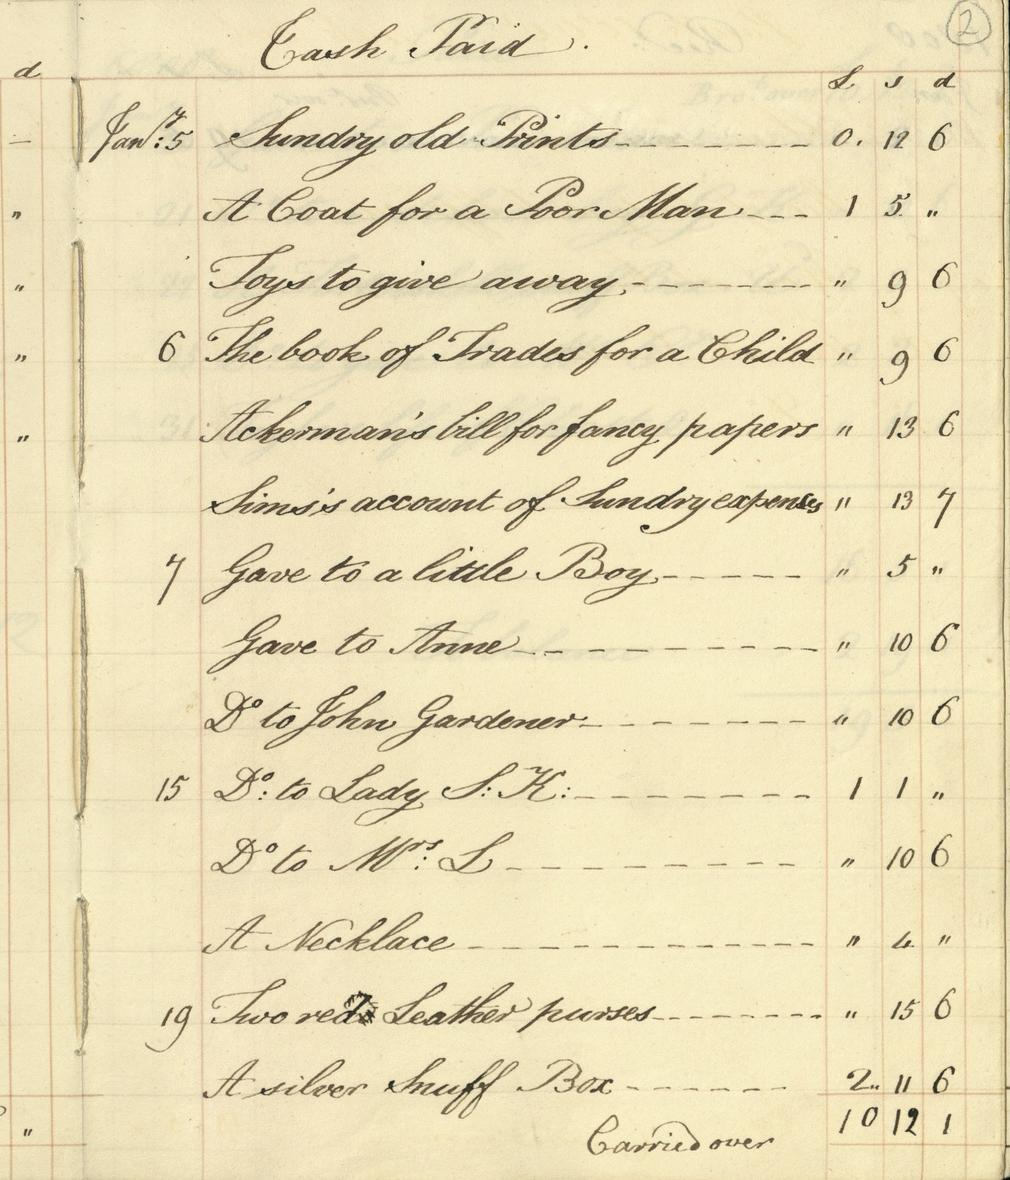 2
Cash Paid.
d
£ s d
Jany: 5 Sundry old Prints 0. 12 6
"
A Coat for a Poor Man 1 5 "
"
Toys to give away " 9 6
"
6 The book of Trades for a Child " 9 6
"
Ackerman's bill for fancy papers " 13 6
Sims's account of Sundry expenses " 13 7
7 Gave to a little Boy " 5 "
Gave to Anne " 10 6
Do to John Gardener " 10 6
15 Do: to Lady S: K: 1 1 "
Do to Mrs: L " 10 6
A Necklace " 4 "
19 Two red Leather purses " 15 6
A silver Snuff Box 2 " 11 6
"
Carried over 10 12 1